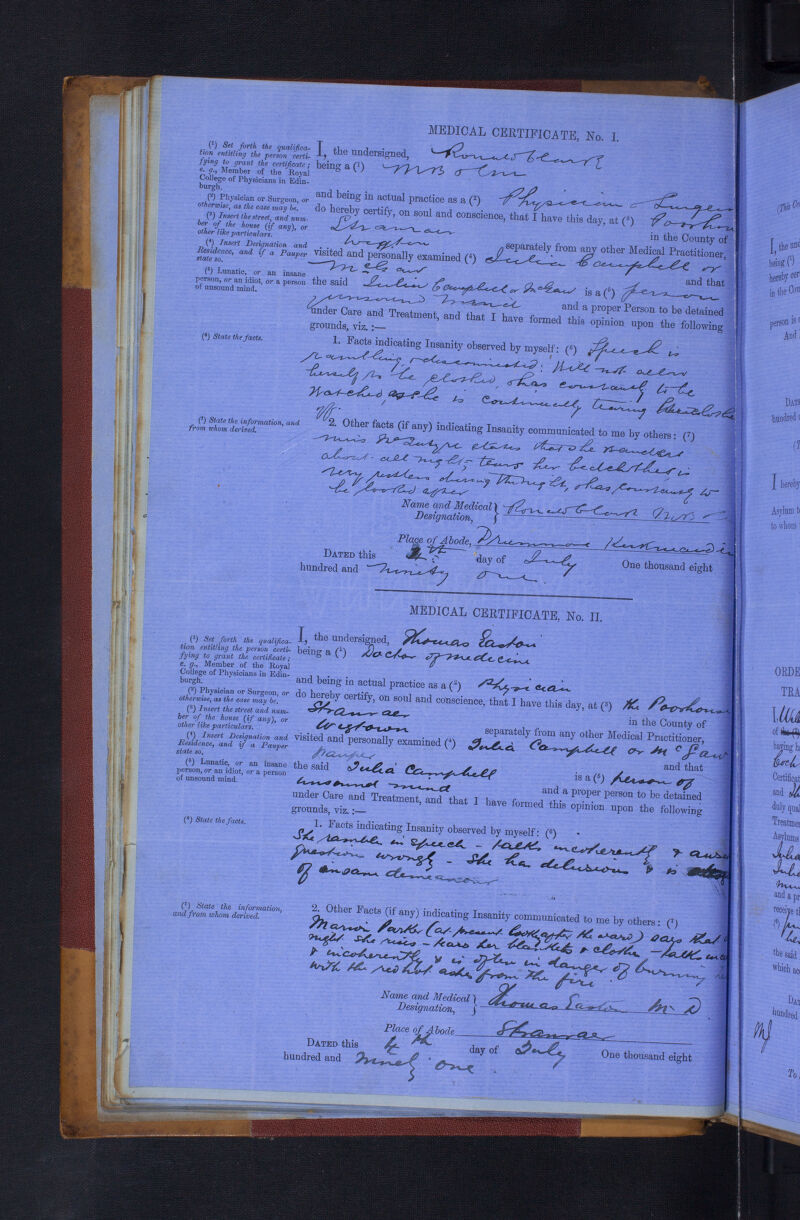 MEDICAL CERTIFICATE, No. I.
(¹) Set forth the qualifica-
tion entitling the person certi-
fying to grant the certificate;
e. g., Member of the Royal
College of Physicians in Edin-
burgh.
(²) Physician or Surgeon, or
otherwise, as the case may be.
(³) Insert the street, and num-
ber of the house (if any), or
other like particulars.
(⁴) Insert Designation and
Residence, and if a Pauper
state so.
(⁵) Lunatic, or an insane
person, or an idiot, or a person
of unsound mind.
I, the undersigned, Ronald Clark
being a (¹) MB & CM
and being in actual practice as a (²) Physician & Surgeon
do hereby certify, on soul and conscience, that I have this day, at (³) Poorhou
Stranraer in the County of
Wigton separately from any other Medical Practitioner,
visited and personally examined (⁴) Julia Campbell or
McGaw and that
the said Julia Campbell or McGaw is a (⁵) person
unsound mind and a proper Person to be detained
under Care and Treatment, and that I have formed this opinion upon the following
grounds, viz. :—
(⁶) State the facts.
1. Facts indicating Insanity observed by myself: (⁶) Speech is
rambling & disconnected: Will not allow
herself to be clothed, & has constantly to be
watched, as she is continually tearing
off.
(⁷) State the information, and
from whom derived.
2. Other facts (if any) indicating Insanity communicated to me by others: (⁷)
McIntyre states that she wanders
about all night, tears her bedclothes, is
very restless during the night, & has constantly to
be looked after
Name and Medical Designation, Ronald Clark M.B.
Place of Abode, Drummore Kirkmaiden
DATED this 4th day of July One thousand eight
hundred and ninety one.
MEDICAL CERTIFICATE, No. II.
(¹) Set forth the qualifica-
tion entitling the person certi-
fying to grant the certificate;
e. g., Member of the Royal
College of Physicians in Edin-
burgh.
(²) Physician or Surgeon, or
otherwise, as the case may be.
(³) Insert the street and num-
ber of the house (if any), or
other like particulars.
(⁴) Insert Designation and
Residence, and if a Pauper
state so.
(⁵) Lunatic, or an insane
person, or an idiot, or a person
of unsound mind.
I, the undersigned, Thomas Easton
being a (¹) Doctor of medicine
and being in actual practice as a (²) Physician
do hereby certify, on soul and conscience, that I have this day, at (³) the Poorhouse
Stranraer in the County of
Wigtown separately from any other Medical Practitioner,
visited and personally examined (⁴) Julia Campbell or McGaw
Pauper and that
the said Julia Campbell is a (⁵) person of
unsound mind and a proper person to be detained
under Care and Treatment, and that I have formed this opinion upon the following
grounds, viz. :—
(⁶) State the facts.
1. Facts indicating Insanity observed by myself: (⁶)
She rambles in speech - talks incoherently & answ
questions wrongly - She has delusions & is
of insane demeanour
(⁷) State the information,
and from whom derived.
2. Other Facts (if any) indicating Insanity communicated to me by others: (⁷)
Marion Parker (at present looks after the ward) says that
night she rises - tears her blankets & clothes - talks
& incoherently & is often in danger of burning
with the red hot ashes from the fire.
Name and Medical Designation, Thomas Easton M.D.
Place of Abode Stranraer
DATED this 4th day of July One thousand eight
hundred and Ninety one.
ORDE
TRA